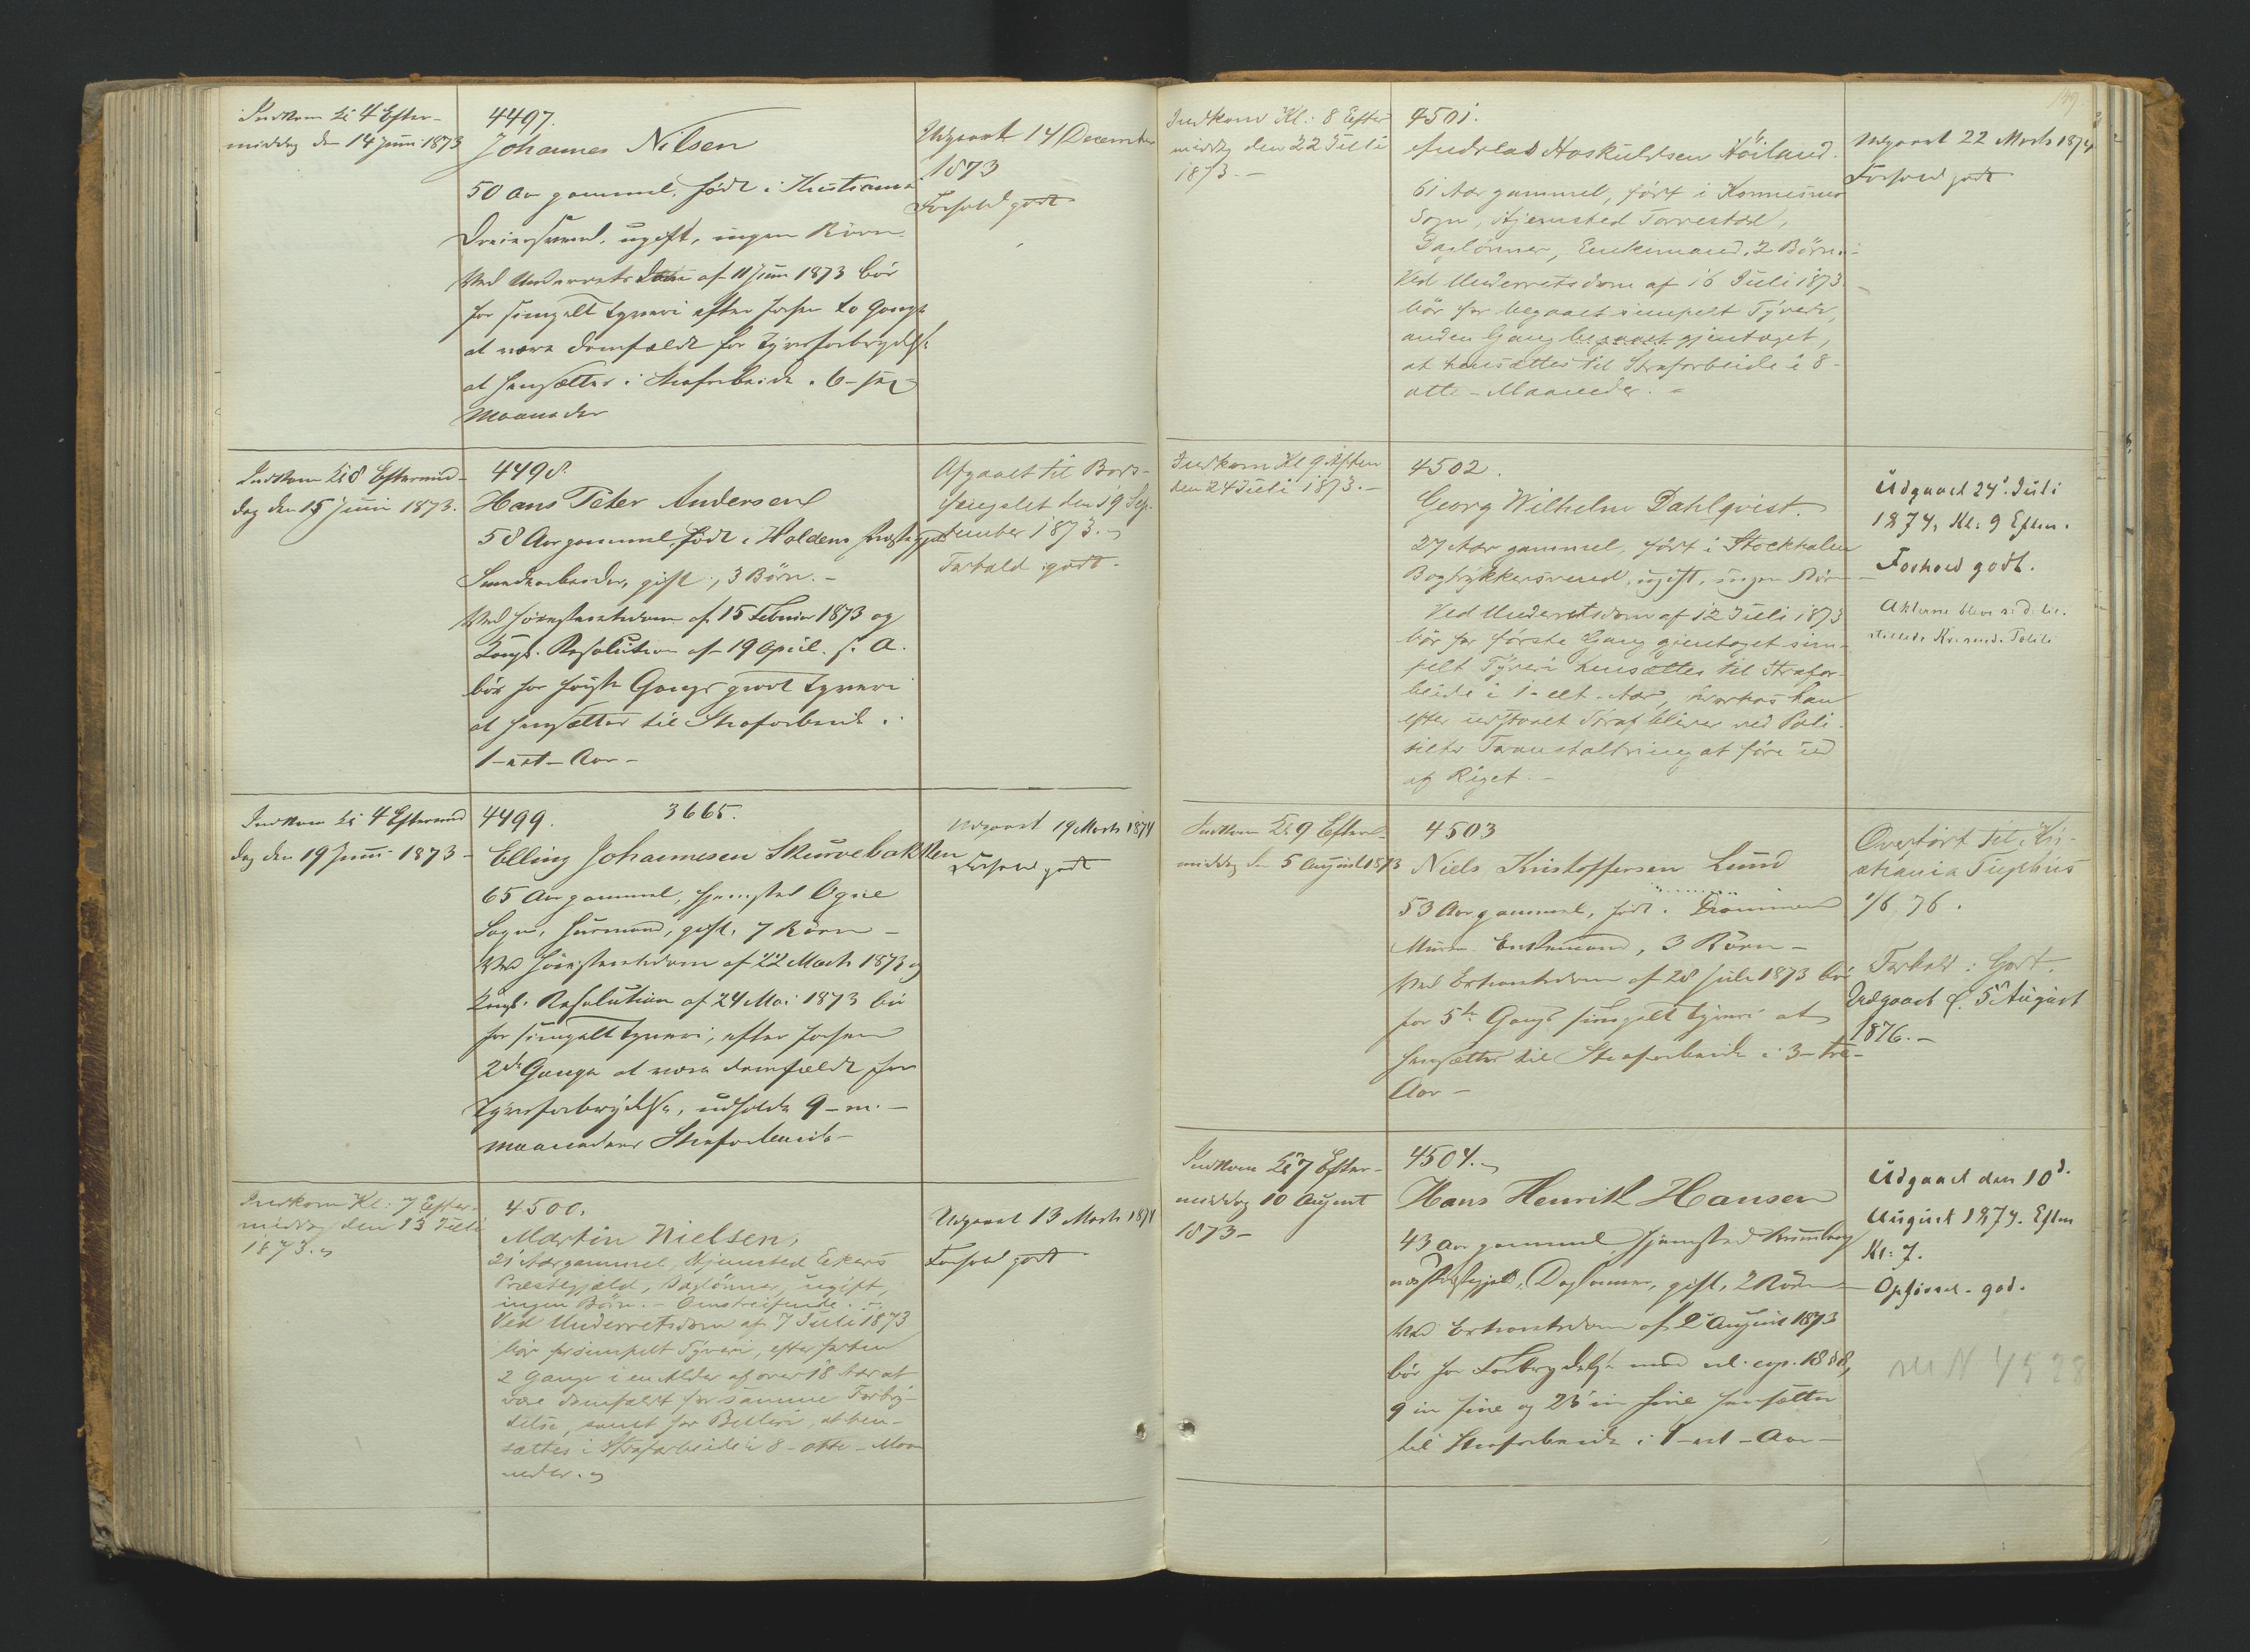 Indkom Kl 4 Efter-
middag den 14 Juni 1873
4497.
Johannes Nilsen
50 Aar gammel, født i Kristiania
Dreiersvend, ugift, ingen Børn.
Ved Underretsdom af 11 Juni 1873 bør
for simpelt Tyveri efter forhen to Gange
at være domfældt for Tyvsforbrydelse
at hensættes i Strafarbeide i 6 - sex
Maaneder
Udgaaet 14 December
1873
Forhold godt
Indkom Kl 8 Eftermid-
dag den 15 Juni 1873.
4498.
Hans Peter Andersen
58 Aar gammel, født i Holdens Præstegjæld
gift, 3 Børn. -
Ved Høiesteretsdom af 15 Februar 1873 og
Kongl. Resolution af 19 April s. A.
bør for første Gangs grovt Tyveri
at hensættes til Strafarbeide i
1 - eet - Aar -
Afgaaet til Bods-
fængslet den 19 Sep-
tember 1873. -
Forhold godt.
Indkom Kl 4 Eftermid
dag den 19 Juni 1873 -
4499. 3665.
Elling Johannesen Skurvebakken
65 Aar gammel, Hjemsted Ogne
Sogn, Husmand, gift, 7 Børn -
Ved Høiesteretsdom af 22 Marts 1873 og
Kongl. Resolution af 24 Mai 1873 bør
for simpelt Tyveri, efter forhen
2de Gange at være domfældt for
Tyvsforbrydelse, udholde 9 - ni -
Maaneders Strafarbeide -
Udgaaet 19 Marts 1874
Forhold godt
Indkom Kl: 7 Efter-
middag den 13 Juli
1873.
4500.
Martin Nielsen,
21 Aar gammel, Hjemsted Ekers
Præstegjæld, Daglønner, ugift,
ingen Børn. - Omstreifende. -
Ved Underretsdom af 7 Juli 1873
bør for simpelt Tyveri, efter forhen
2 Gange i en Alder af over 18 Aar at
være domfældt for samme Forbry-
delse, samt for Betleri, at hen-
sættes i Strafarbeide i 8 - otte - Maa
neder.
Udgaaet 13 Marts 1874
Forhold godt
149
Indkom Kl: 8 Efter
middag den 22 Juli
1873. -
4501.
Andreas Hoskuldsen Höiland.
61 Aar gammel, født i
Sogn, Hjemsted Torrestad,
Daglønner, Enkemand, 2 Børn. -
Ved Underretsdom af 16 Juli 1873
bør for begaaet simpelt Tyveri,
anden Gang begaaet gjentaget,
at hensættes til Strafarbeide i 8 -
otte - Maaneder. -
Udgaaet 22 Marts 1874
Forhold godt
Indkom Kl 9 Aften
den 24 Juli 1873. -
4502.
Georg Wilhelm Dahlqvist.
27 Aar gammel, født i Stockholm
Bogtrykkersvend, ugift, ingen Børn
Ved Underretsdom af 12 Juli 1873
bør for første Gang gjentaget sim-
pelt Tyveri hensættes til Strafar-
beide i 1 - eet - Aar, hvorhos han
efter udstaaet Straf bliver ved Poli-
tiets Foranstaltning at føre ud
af Riget. -
Udgaaet 24. Juli
1874, Kl: 9 Eften.
Forhold godt.
Indkom Kl 9 Efter-
middag den 5 August 1873
4503
Niels Kristoffersen Lund
53 Aar gammel, født i Drammen
Murer. Enkemand, 3 Børn -
Ved Extraretsdom af 28 Juli 1873 bør
for 5te Gangs simpelt Tyveri at
hensættes til Strafarbeide i 3 - tre -
Aar -
Overført til Kri-
stiania Tugthus
1/6 76.
Forhold: Godt.
Udgaaet d. 5 August
1876. -
Indkom Kl 7 Efter-
middag 10 August
1873 -
4504.
Hans Henrik Hansen
43 Aar gammel, Hjemsted
Præstegjæld, Daglønner, gift, 2 Børn
Ved Extraretsdom af 2 August 1873
bør for Forbrydelse mod cap. 18 § 8,
9 in fine og 23 in fine hensættes
til Strafarbeide i 1 - eet - Aar -
Udgaaet den 10d.
August 1874. Eften
Kl: 7.
Opførsel - god.
N 4528